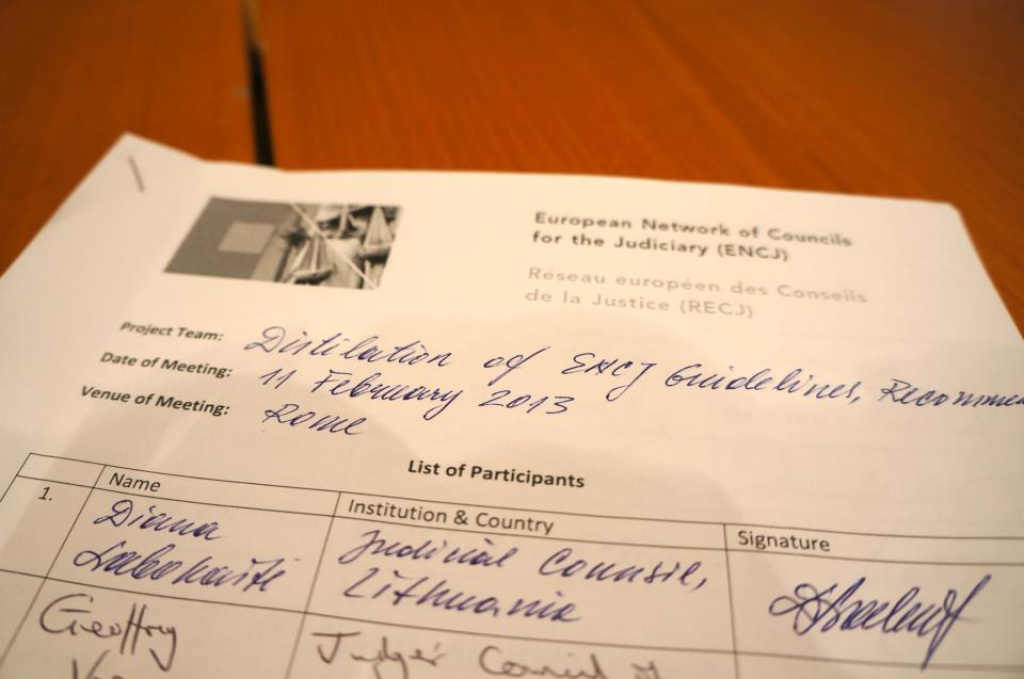 European Network of Councils
for the Judiciary (ENCJ)
Réseau européen des Conseils
de la Justice (RECJ)
Project Team: Distilation of ENCJ Guidelines, Recomme
Date of Meeting: 11 February 2013
Venue of Meeting: Rome
List of Participants
Name Institution & Country Signature
1. Diana Judicial Counsil,
Labokaitė Lithuania
Geoffry Judges' Council of